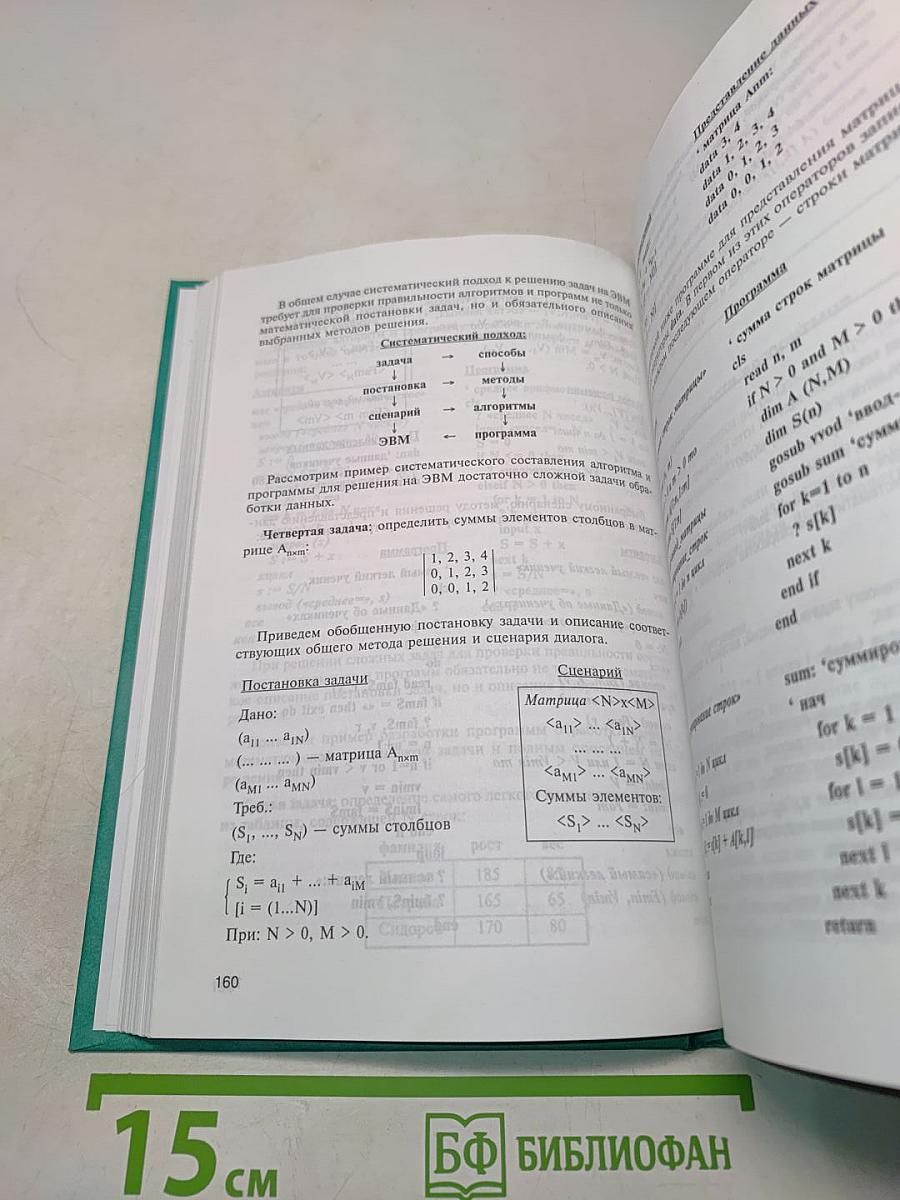 В общем случае систематический подход к решению задач на ЭВМ
требует для проверки правильности алгоритмов и программ не только
математической постановки задач, но и обязательного описания
выбранных методов решения.
Систематический подход:
задача → способы
↓ ↓
постановка → методы
↓ ↓
сценарий → алгоритмы
↓ ↓
ЭВМ ← программа
Рассмотрим пример систематического составления алгоритма и
программы для решения на ЭВМ достаточно сложной задачи обра-
ботки данных.
Четвертая задача: определить суммы элементов столбцов в мат-
рице Aₙₓₘ:
1, 2, 3, 4
0, 1, 2, 3
0, 0, 1, 2
Приведем обобщенную постановку задачи и описание соответ-
ствующих общего метода решения и сценария диалога.
Постановка задачи
Дано:
(a11 ... a1N)
(... ... ... ) — матрица Aₙₓₘ
(aM1 ... aMN)
Треб.:
(S1, ..., SN) — суммы столбцов
Где:
Si = ai1 + ... + aiM
[i = (1...N)]
При: N > 0, M > 0.
Сценарий
Матрица <N>x<M>
<a11> ... <a1N>
... ... ...
<aM1> ... <aMN>
Суммы элементов:
<S1> ... <SN>
160
Представление данных
' матрица Anm:
data 3, 4
data 1, 2, 3, 4
data 0, 1, 2, 3
data 0, 0, 1, 2
программе для представления матрицы
В первом из этих операторов
последующем операторе — строки
Программа
' сумма строк матрицы
cls
read n, m
if N > 0 and M > 0
dim A (N,M)
dim S(n)
gosub vvod
gosub sum
for k=1 to n
? s[k]
next k
end if
end
sum:
' нач
for k = 1
s[k] =
for l =
s[k] =
next l
next k
return
15 см
БФ БИБЛИОФАН